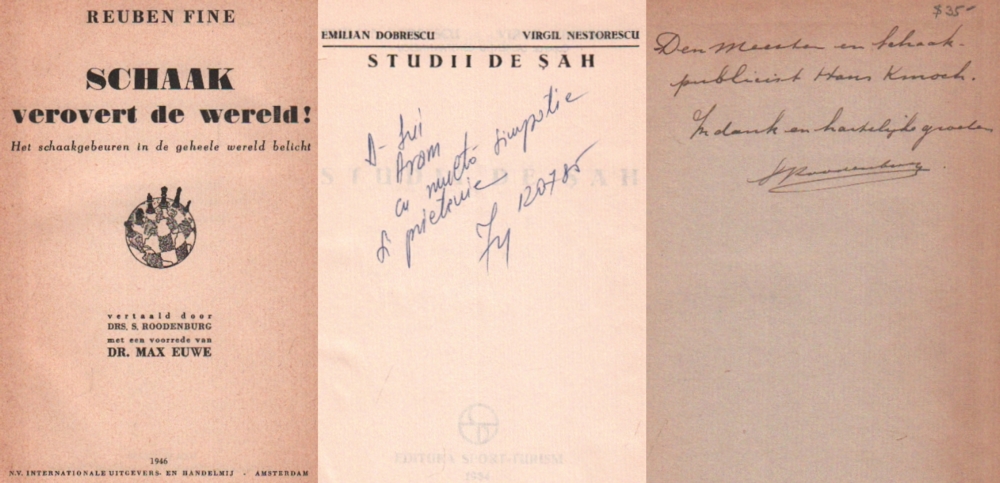 REUBEN FINE
SCHAAK
verovert de wereld!
Het schaakgebeuren in de geheele wereld belicht
vertaald door
DRS. S. ROODENBURG
met een voorrede van
DR. MAX EUWE
1946
N.V. INTERNATIONALE UITGEVERS- EN HANDELMIJ - AMSTERDAM
EMILIAN DOBRESCU VIRGIL NESTORESCU
STUDII DE ȘAH
D-lui
Avram
cu multă simpatie
și prietenie
120785
STUDII DE ȘAH
EDITURA SPORT-TURISM
1984
$35-
Den meester en schaak-
publicist Hans Kmoch.
In dank en hartelijke groeten
SRoodenburg.